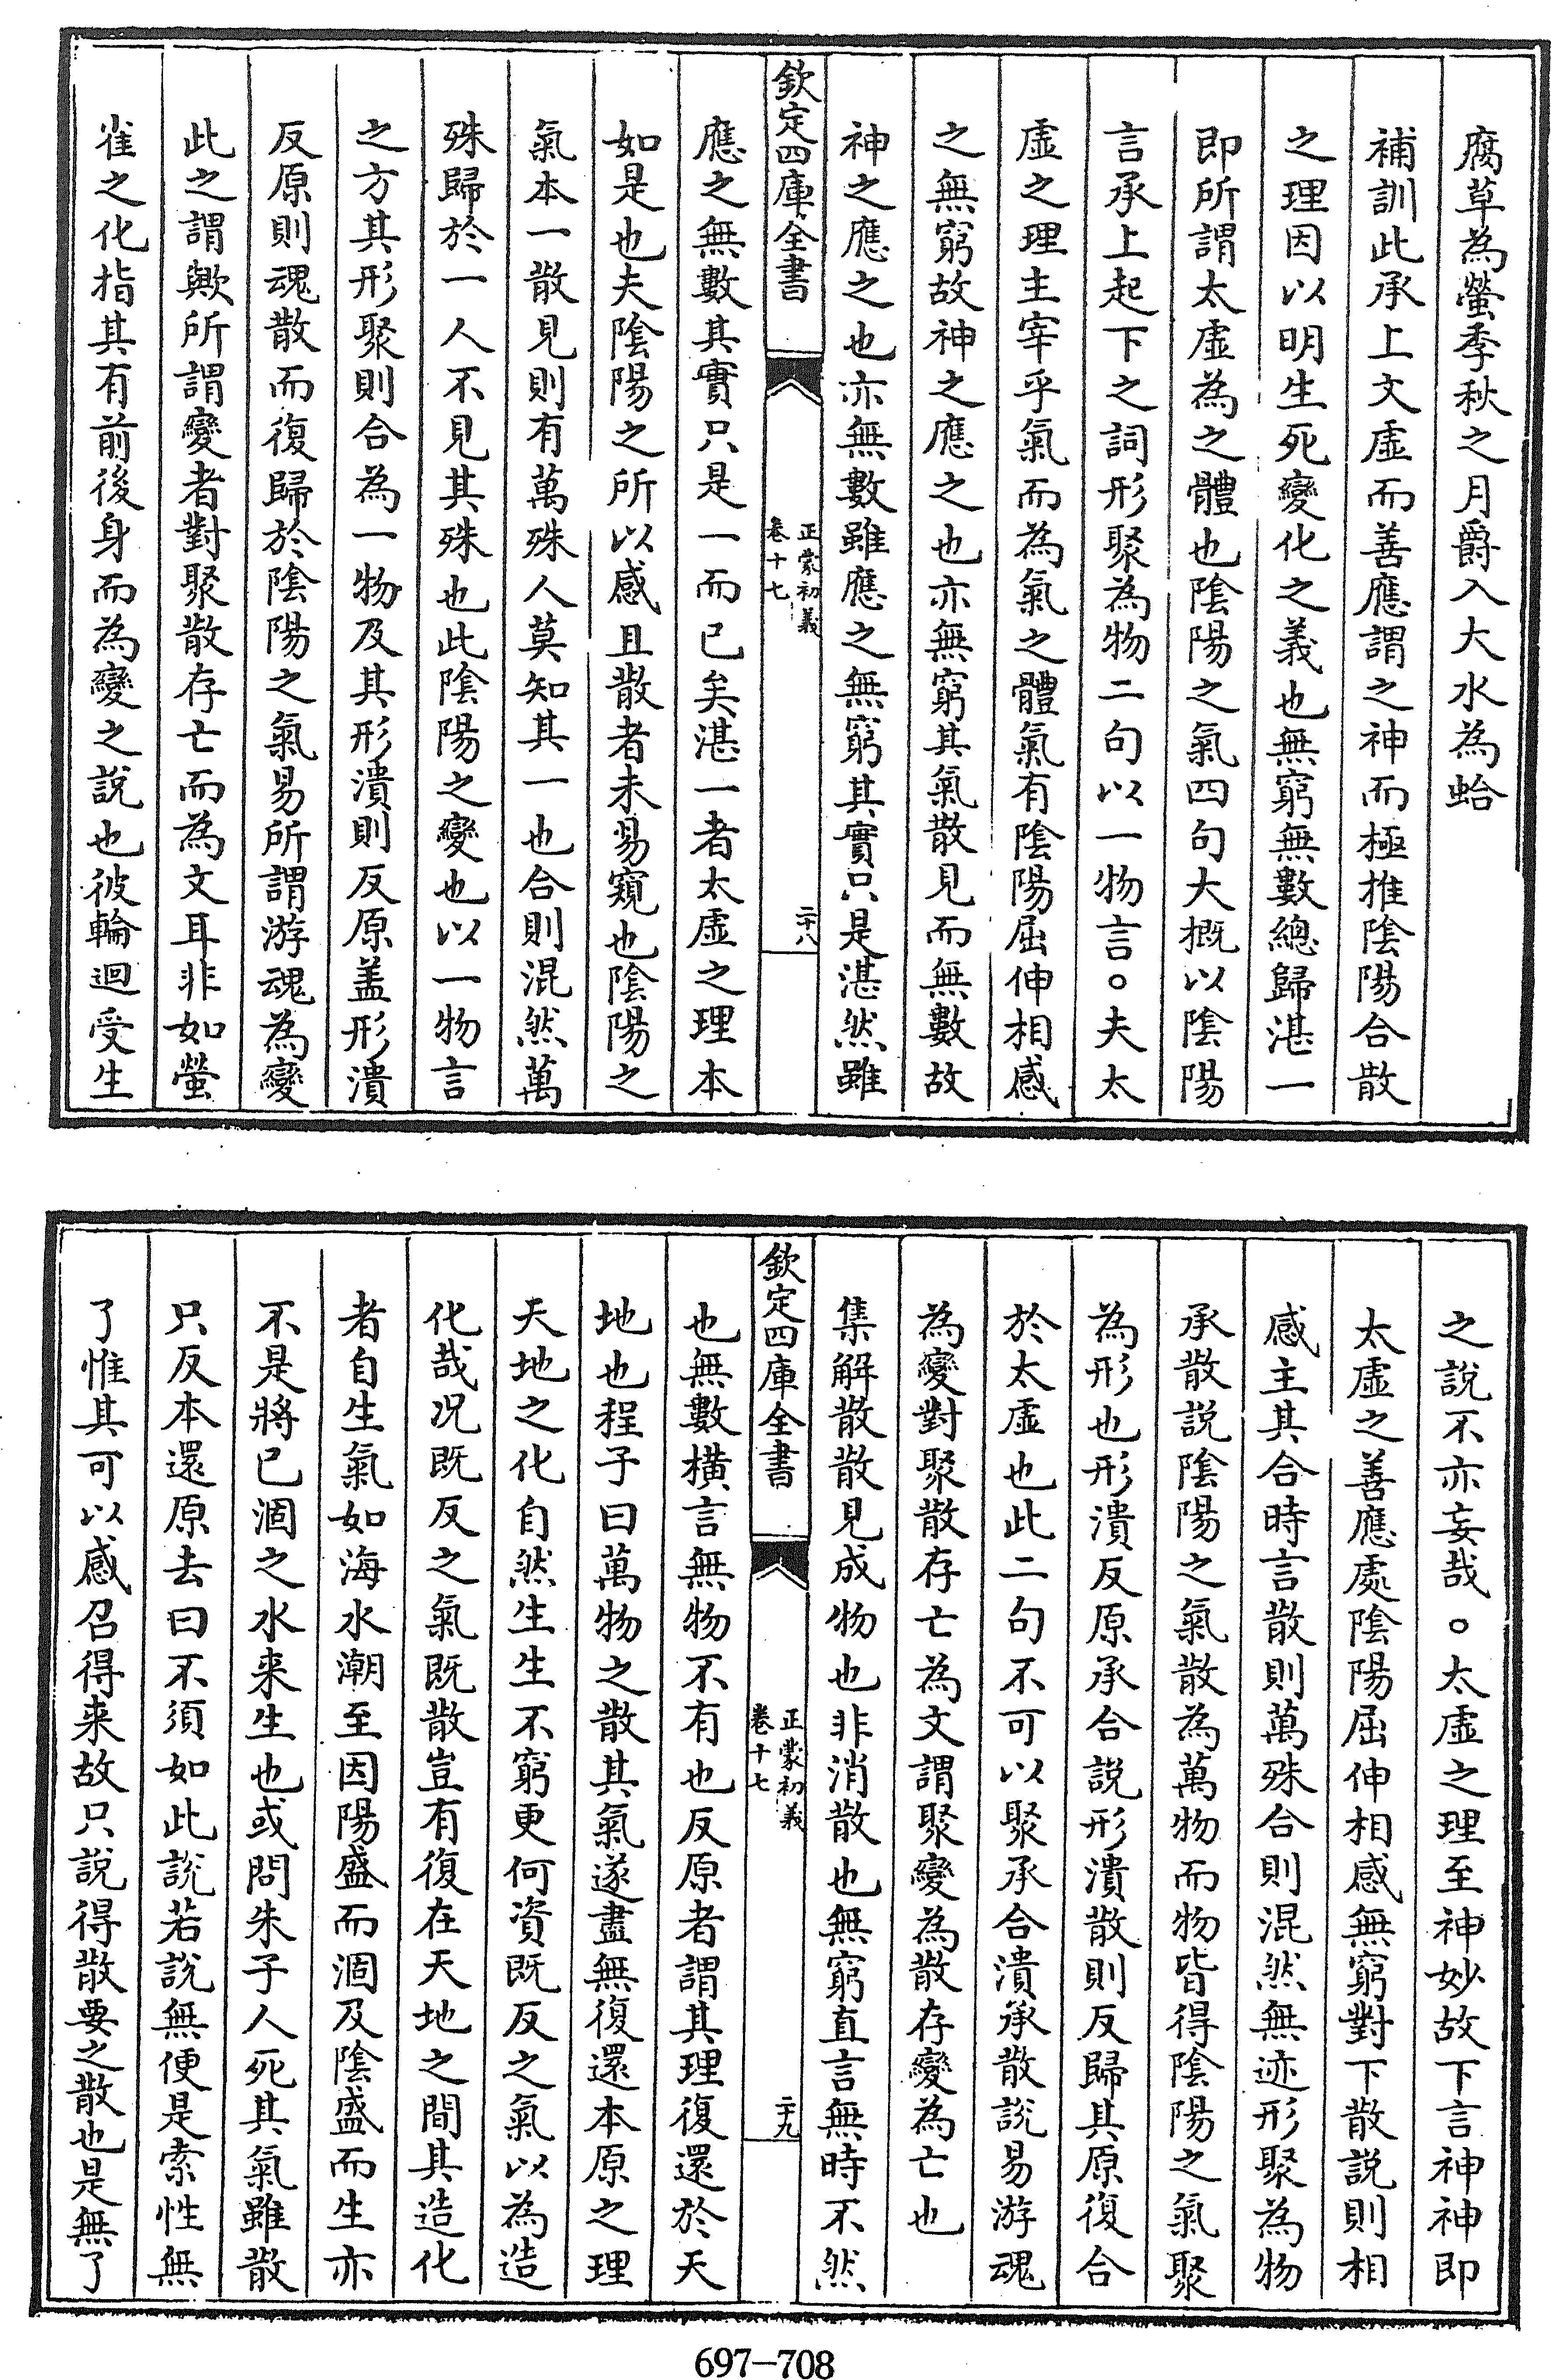 腐草為螢季秋之月爵入大水為蛤
補訓此承上文虛而善應謂之神而極推陰陽合散
之理因以明生死變化之義也無窮無數總歸湛一
即所謂太虛為之體也陰陽之氣四句大概以陰陽
言承上起下之詞形聚為物二句以一物言○夫太
虛之理主宰乎氣而為氣之體氣有陰陽屈伸相感
之無窮故神之應之也亦無窮其氣散見而無數故
神之應之也亦無數雖應之無窮其實只是湛然雖
欽定四庫全書
正蒙初義
卷十七
二十八
應之無數其實只是一而已矣湛一者太虛之理本
如是也夫陰陽之所以感且散者未易窺也陰陽之
氣本一散見則有萬殊人莫知其一也合則混然萬
殊歸於一人不見其殊也此陰陽之變也以一物言
之方其形聚則合為一物及其形潰則反原盖形潰
反原則魂散而復歸於陰陽之氣易所謂游魂為變
此之謂歟所謂變者對聚散存亡而為文耳非如螢
雀之化指其有前後身而為變之說也彼輪迴受生
之說不亦妄哉○太虛之理至神妙故下言神神即
太虛之善應處陰陽屈伸相感無窮對下散說則相
感主其合時言散則萬殊合則混然無迹形聚為物
承散說陰陽之氣散為萬物而物皆得陰陽之氣聚
為形也形潰反原承合說形潰散則反歸其原復合
於太虛也此二句不可以聚承合潰承散說易游魂
為變對聚散存亡為文謂聚變為散存變為亡也
集解散散見成物也非消散也無窮直言無時不然
欽定四庫全書
正蒙初義
卷十七
二十九
也無數橫言無物不有也反原者謂其理復還於天
地也程子曰萬物之散其氣遂盡無復還本原之理
天地之化自然生生不窮更何資既反之氣以為造
化哉况既反之氣既散豈有復在天地之間其造化
者自生氣如海水潮至因陽盛而涸及陰盛而生亦
不是將已涸之水来生也或問朱子人死其氣雖散
只反本還原去曰不須如此說若說無便是索性無
了惟其可以感召得来故只說得散要之散也是無了
697-708